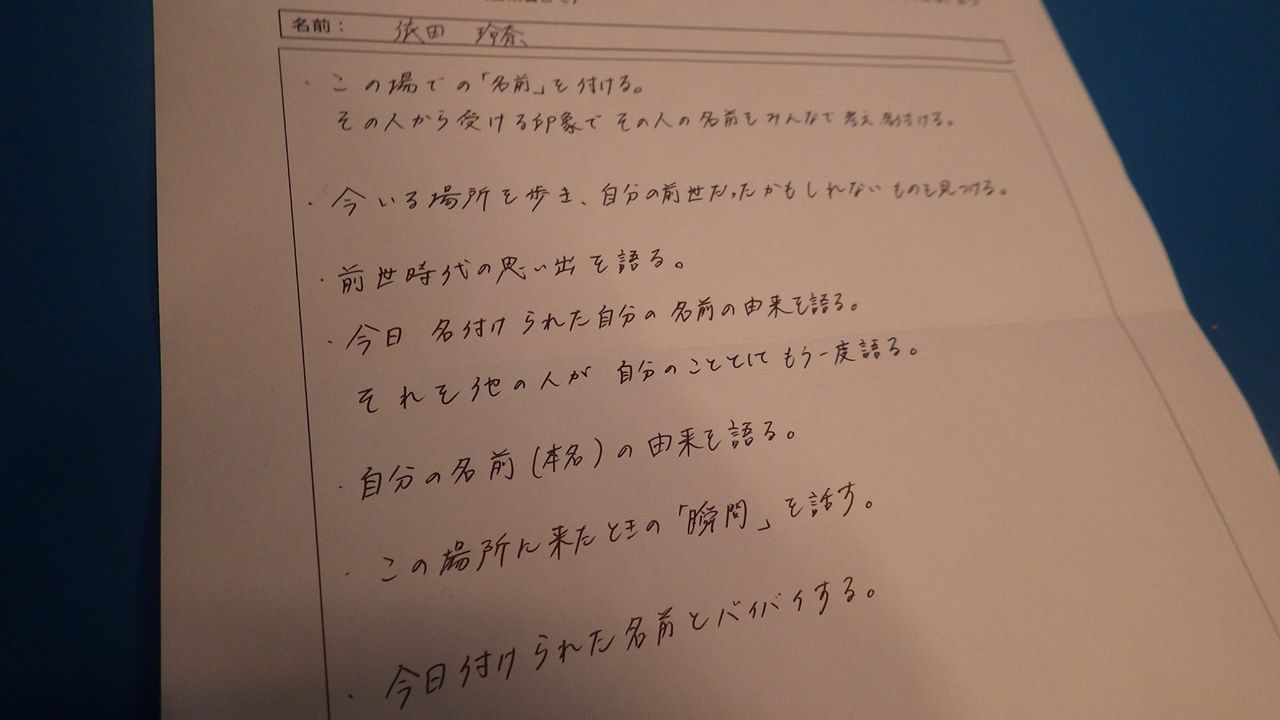 名前： 依田 玲奈
・この場での「名前」を付ける。
その人から受ける印象でその人の名前をみんなで考え名付ける。
・今いる場所を歩き、自分の前世だったかもしれないものを見つける。
・前世時代の思い出を語る。
・今日 名付けられた自分の名前の由来を語る。
それを他の人が 自分のこととしてもう一度語る。
・自分の名前(本名)の由来を語る。
・この場所に来たときの「瞬間」を話す。
・今日付けられた名前とバイバイする。